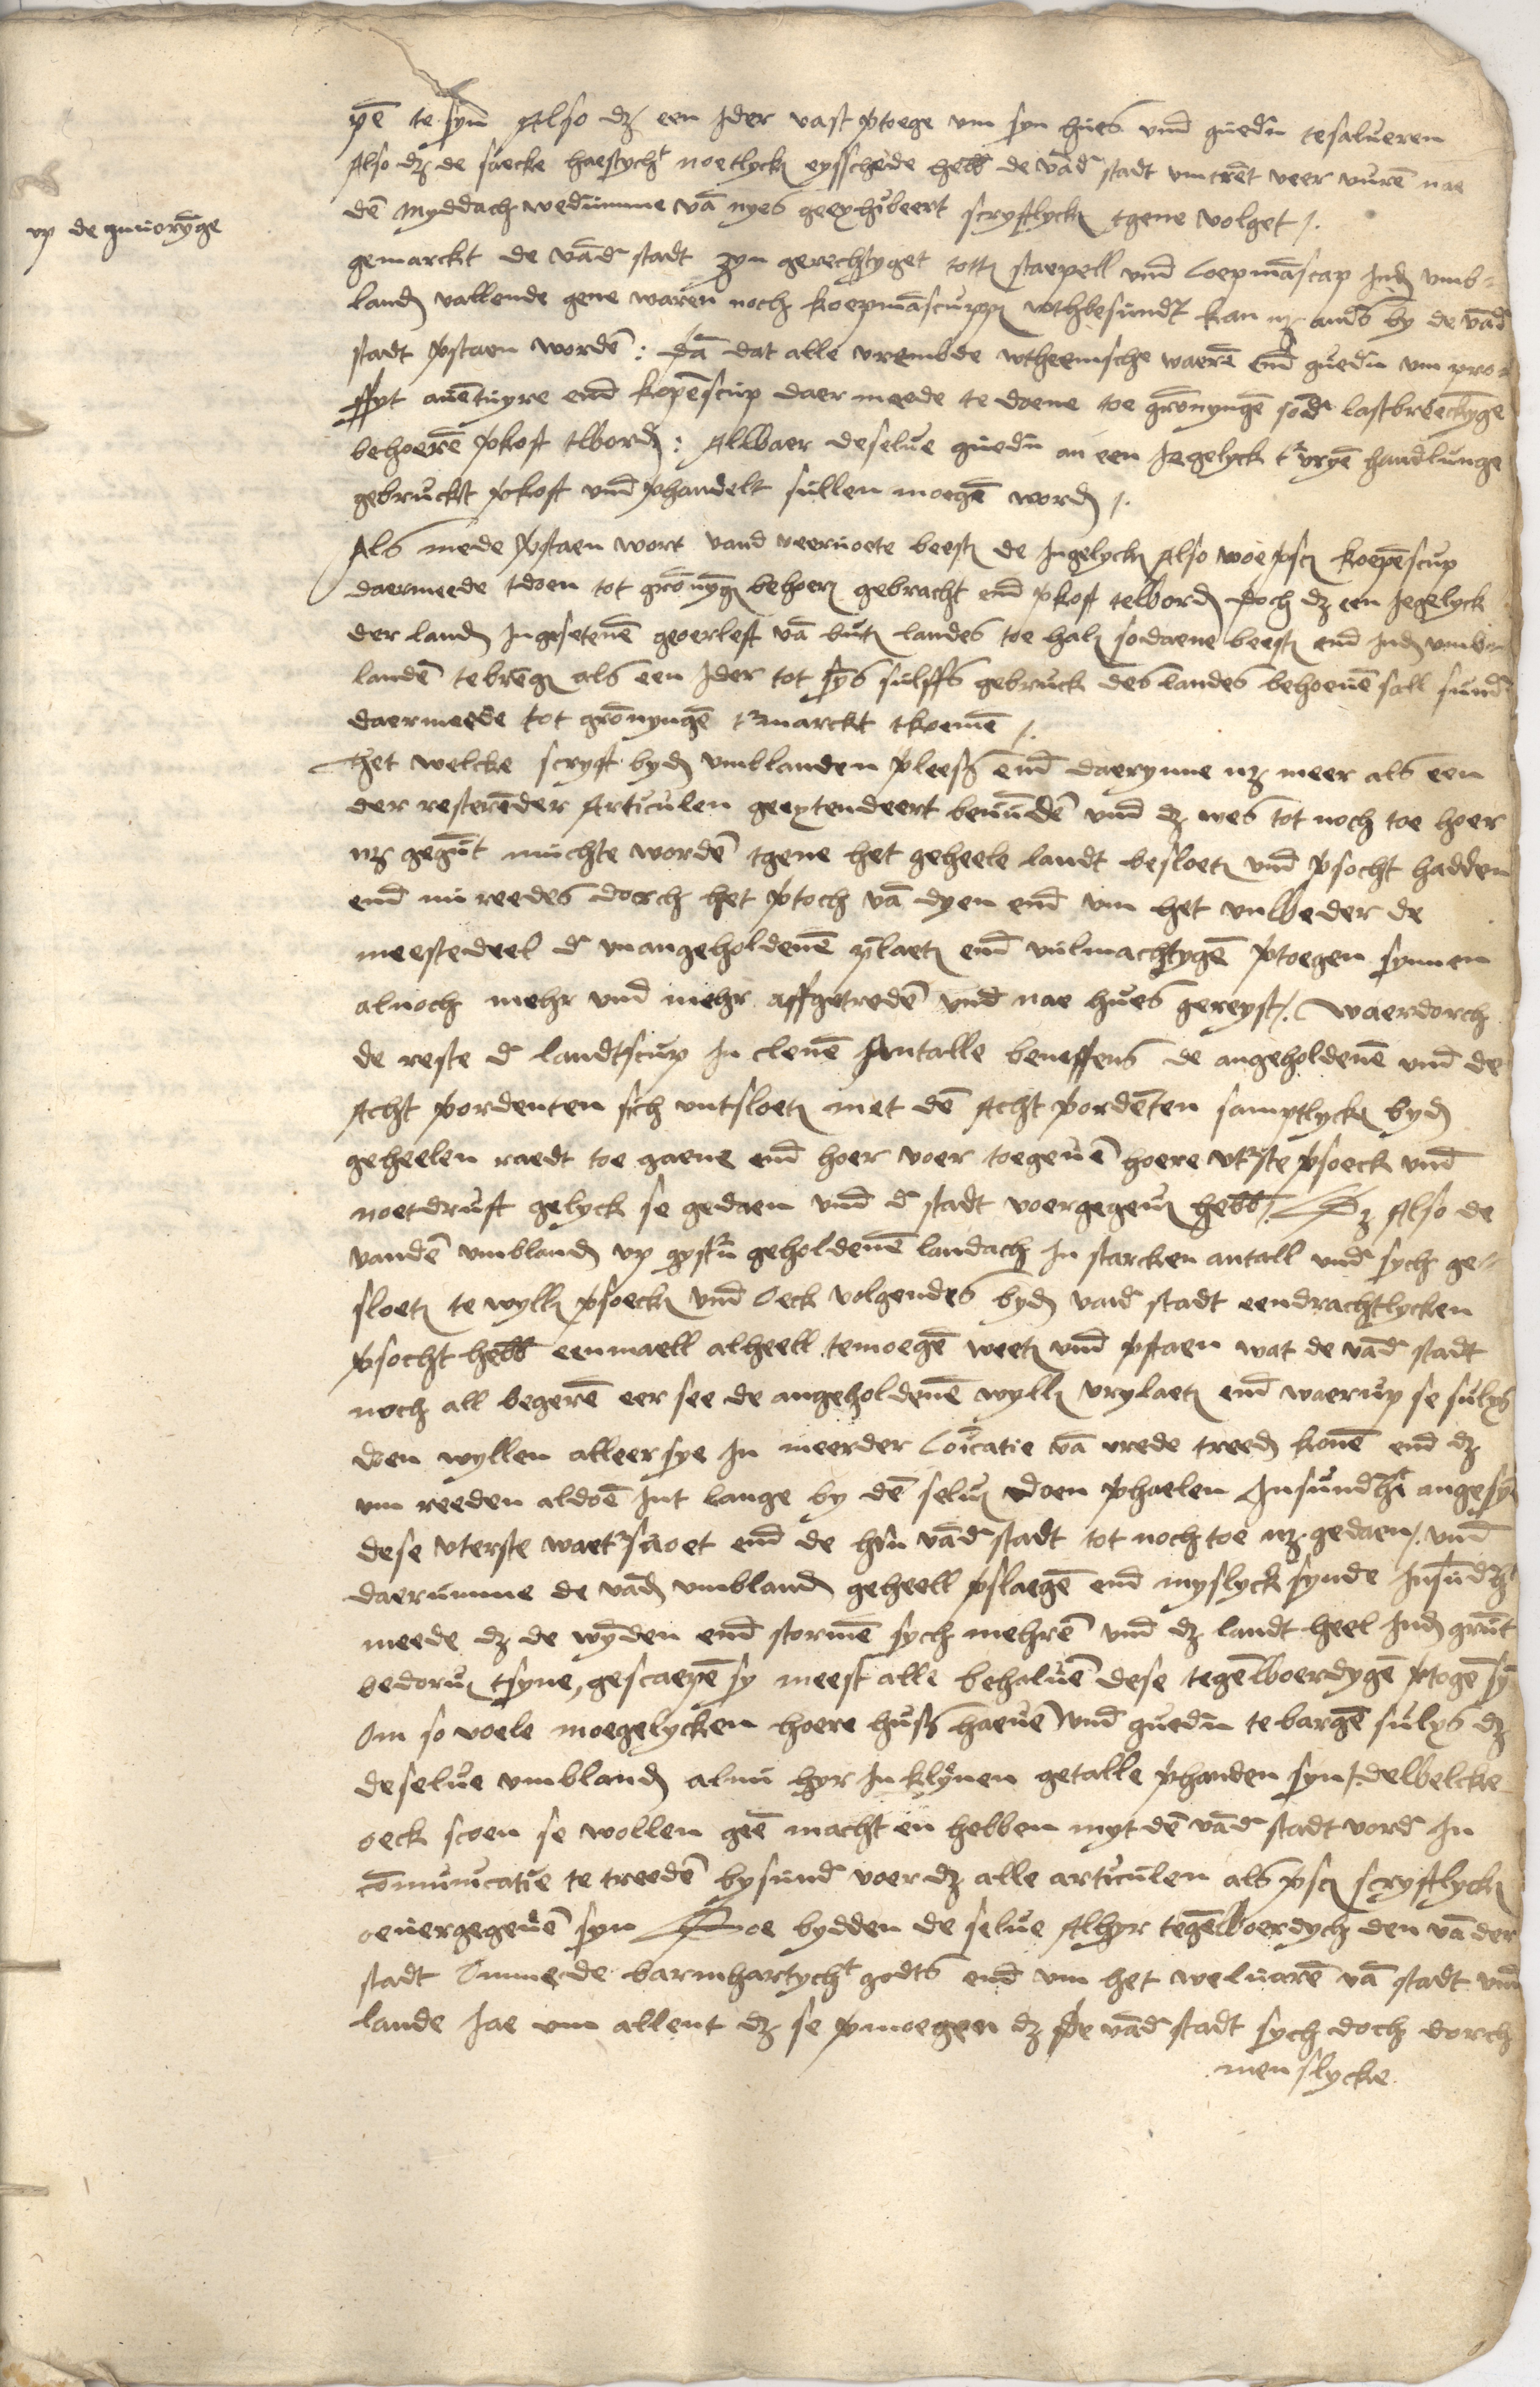 pē te syn Also dz een Jder vast ptoege um syn hues und guedn tesalueren
Also dz de saecke haestycht noetlyck eysschede hebb de vād stadt umtrēt veer uurē nae
dē Myddach wedūmme vā nyes geexhibeert scryftlyck tgene volget /.
up de
gemarckt de vād stadt zyn gerechtyget totte staepell und Coepmāscap Ind umb-
land vallende gene waren noch koepmāscupp wthbesundt kan nz anders by de vād
stadt pstaen wordē : Dā dat alle vrembde wtheemsche waerē end guedn um pro-
ffyt auētuyre end kopēscup daer meede te doene toe grōnyngē sodr lastbreeckyge
behoerē pkoft tword : Alwaer deselue guedn an een Jegelyck tr vryē handlunge
gebruckt pkoft und phandelt sullen moegē word /.
Als mede pstaen wort vand veernoete beest de Ingelyck Also woe psc koepēscup
daermeede tdoen tot grōnyg behoer gebracht end pkoft teword doch dz een Jegelyck
der land Ingesetenē geoerleft vā but landes toe hale sodaene beest end Ind umb-
landē tebreng als een Jder tot sys sulffs gebruck des landes behoeuē sall sund
daermeede tot grōnyngē tr marckt tkoemē /.
Het welcke scryft byd umblanden pleess end daerynne nz meer als een
der resterēder Articulen geextendeert beuūdē und dz wes tot noch toe hoer
nz gegūt muchte wordē tgene het geheele landt besloet und psocht hadden
end nu reedes dorch het ptoch vā dyen end um het unweder de
meestedeel dr unangeholdenē plaet end uulmachtygē ptoegen synnen
alnoch mehr und mehr affgetredē und nae hues gereyst /. Waerdorch
de reste dr landtscup In clenē Antalle beneffens de angeholdenē und de
Acht pordenten sich untsloet met dē Acht pordēten samptlyck byd
geheelen raedt toe gaene end hoer voer toegeuē hoere utrste psoeck und
noetdruft gelyck se gedaen und dr stadt voergegeue hebb /. Dz Also de
vandē umbland up gystrn geholdenē landach In starcken antall und sych ge-
sloet te wylle psoeck und Oeck volgendes byd vand stadt eendrachtlycken
psocht hebb eenmaell alheell temoegē weet und pstaen wat de vād stadt
noch all begerē eer see de angeholdenē wylle vrylaet end waerup se sulx
doen wyllen alleer sye In meerder Coīcatie vā vrede treed konē end dz
um reeden aldoē Int lange by dē selue doen phaelen Insundht angesyē
dese uterste end de hrn vād stadt tot noch toe nz gedaen /. und
daerumme de vād umbland geheell pslaegē end myslyck synde Insūdht
meede dz de wynden end stormē sych mehrē und dz landt heel Ind grūt
bedorue tsyne, gescaepē sy meest alle behaluē dese tegēwoerdygē ptogē syn
Om so voele moegelycken hoere huss haeuē und guedn te bargē sulx dz
deselue umbland alnu hyr In klynen getalle phanden syn /. dewelcke
oeck scoen se wollen geē macht en hebben myt dē vād stadt vord In
cōmunicatie te treedē bysund voer dz alle articulen als psc scryftlyck
oeuergegeuē syn Soe bydden de selue Alhyr tegēwoerdych den vā der
stadt Omme de barmhartycht godts end um het weluarē vā stadt und
lande Jae um allent dz se pmoegen dz de vād stadt sych doch dorch
menslycke